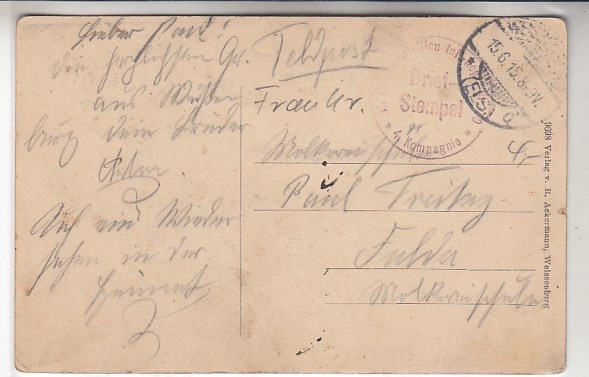 Lieber Paul!
Die herzlichsten Gr.
aus Weißen
burg Dein Bruder
Auf ein Wieder
sehen in der
Heimat
Feldpost
Brief-
Stempel
4. Kompagnie
15.6.15.8-9V.
(ELS)
Molkereischule
Paul Freitag
Fulda
Molkereischule
9698 Verlag v. R. Ackermann, Weissenburg